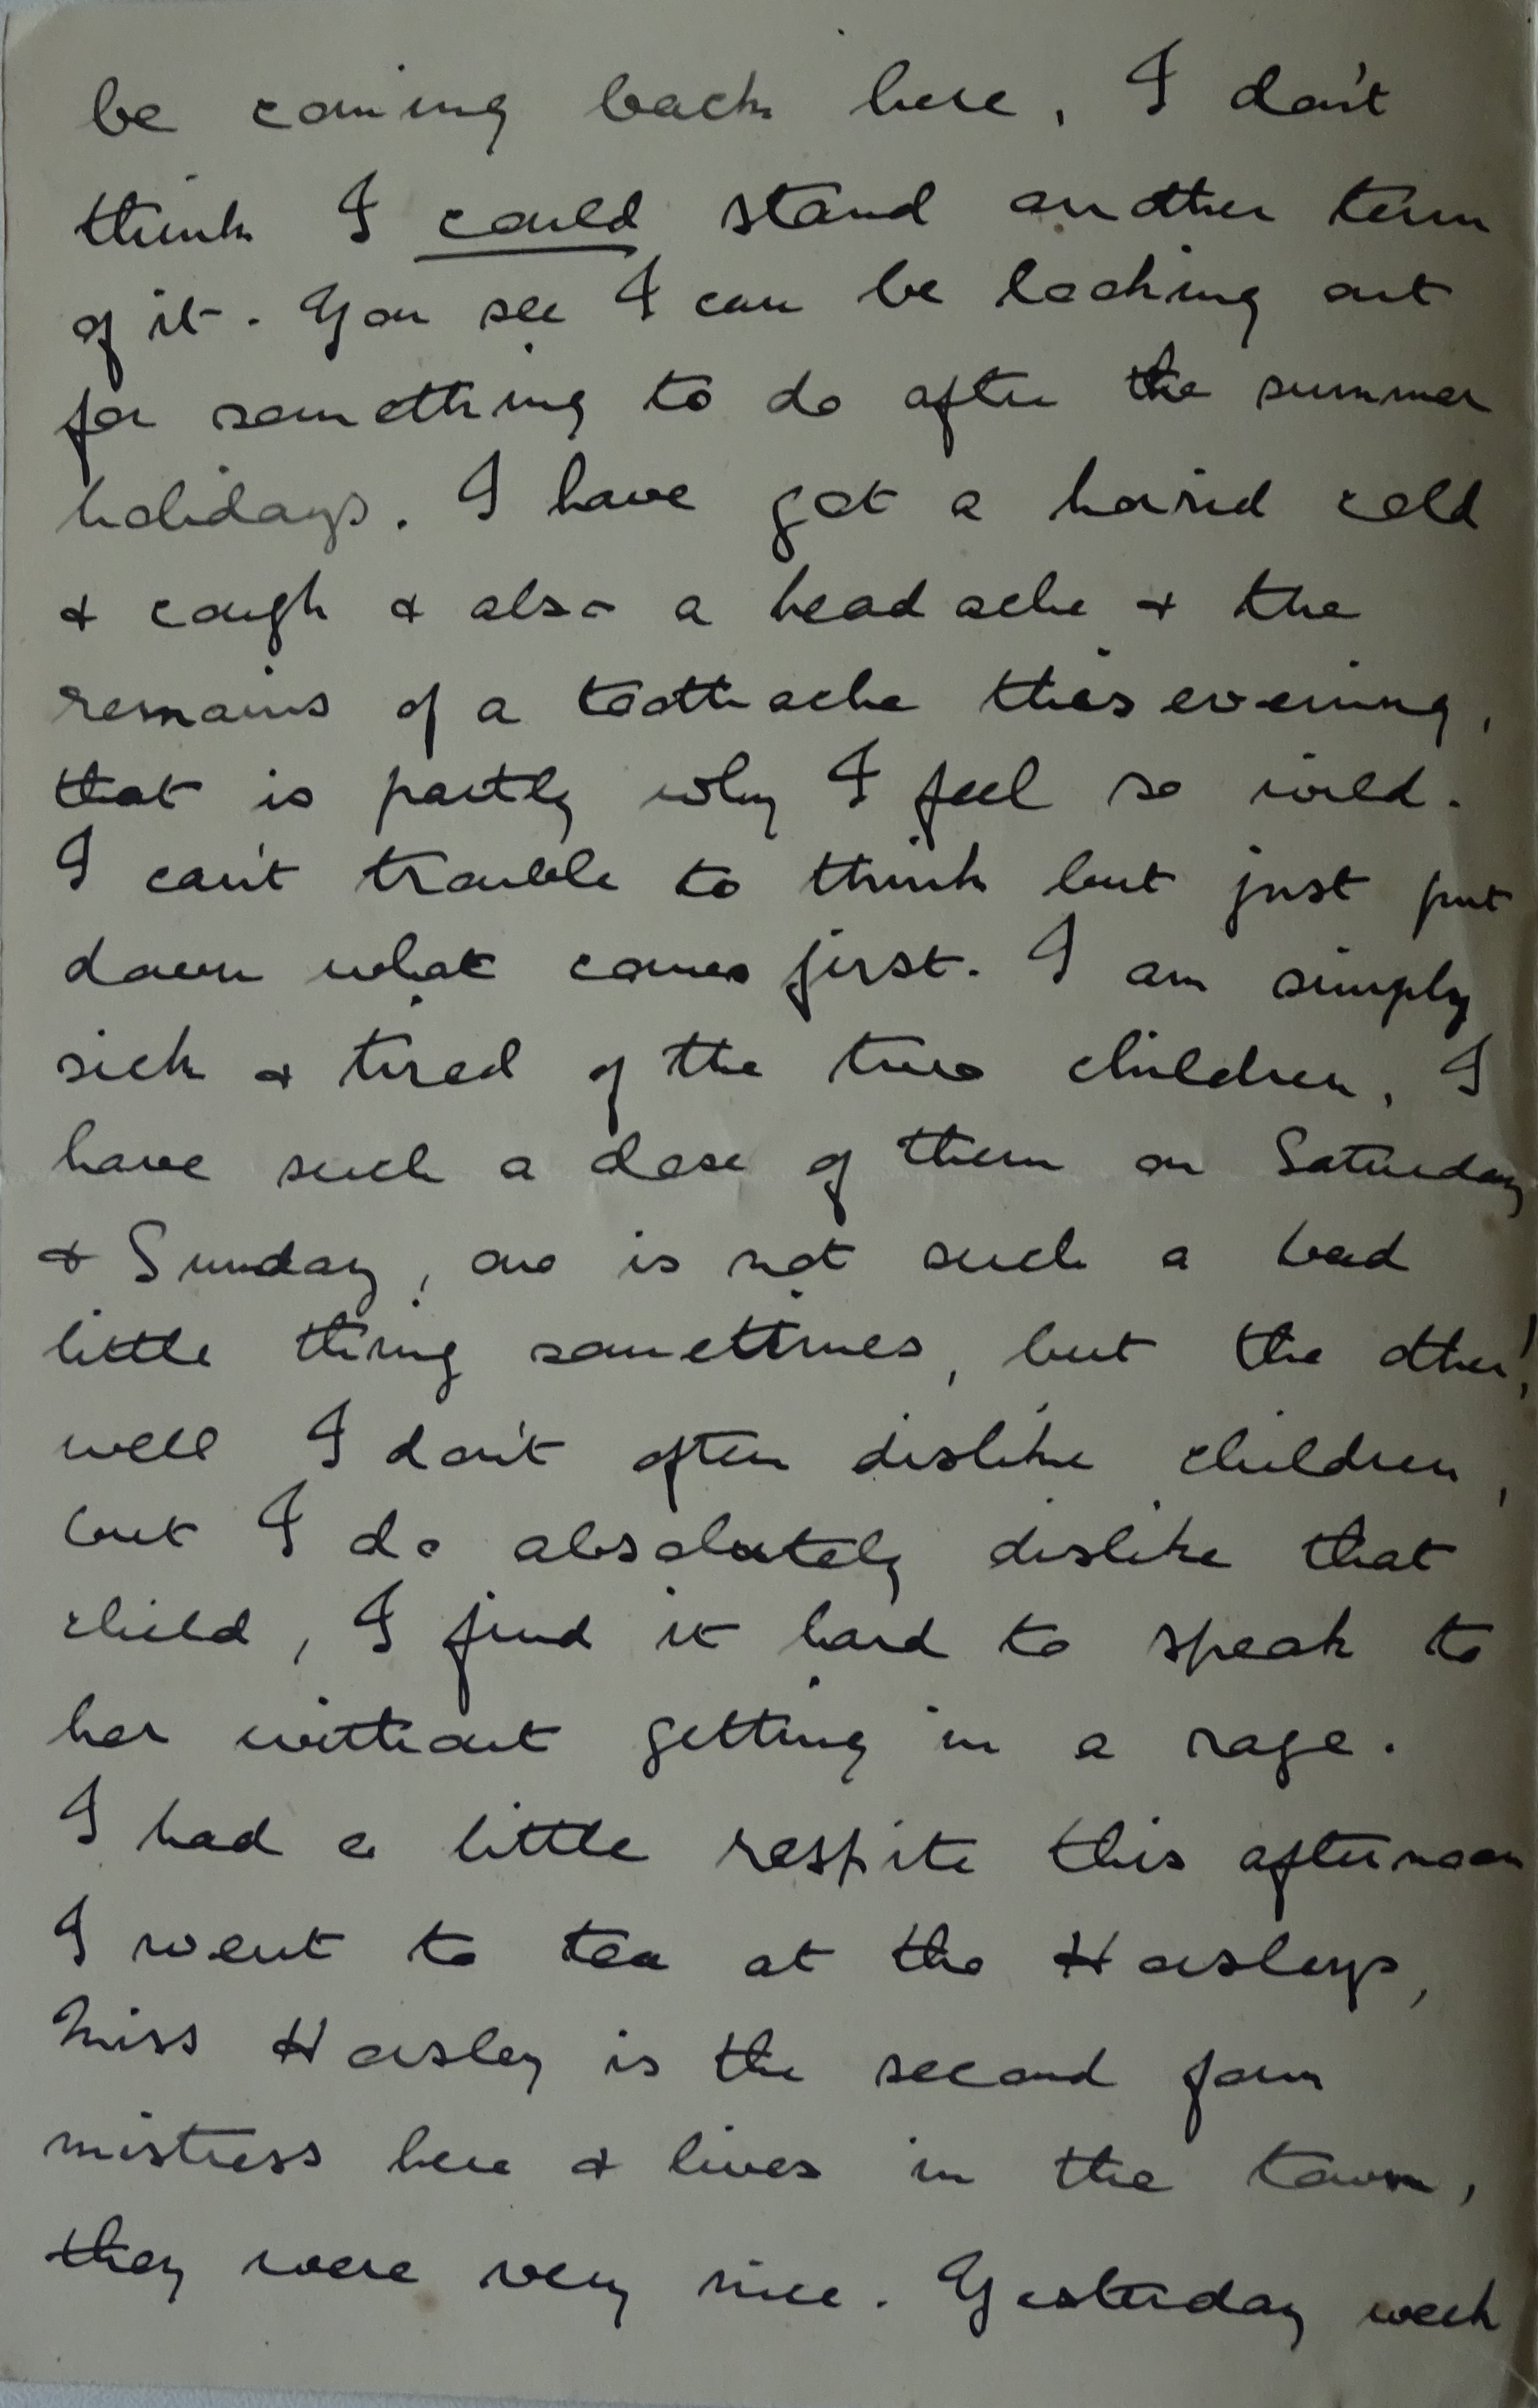 be coming back here, I don't
think I could stand another term
of it. You see I can be looking out
for something to do after the summer
holidays. I have got a horrid cold
& cough & also a headache & the
remains of a toothache this evening,
that is partly why I feel so wild.
I can't trouble to think but just put
down what comes first. I am simply
sick & tired of the two children, I
have such a dose of them on Saturday
& Sunday, one is not such a bad
little thing sometimes, but the other!
well I don't often dislike children,
but I do absolutely dislike that
child, I find it hard to speak to
her without getting in a rage.
I had a little respite this afternoon
I went to tea at the Horsleys,
Miss Horsley is the second form
mistress here & lives in the town,
they were very nice. Yesterday week